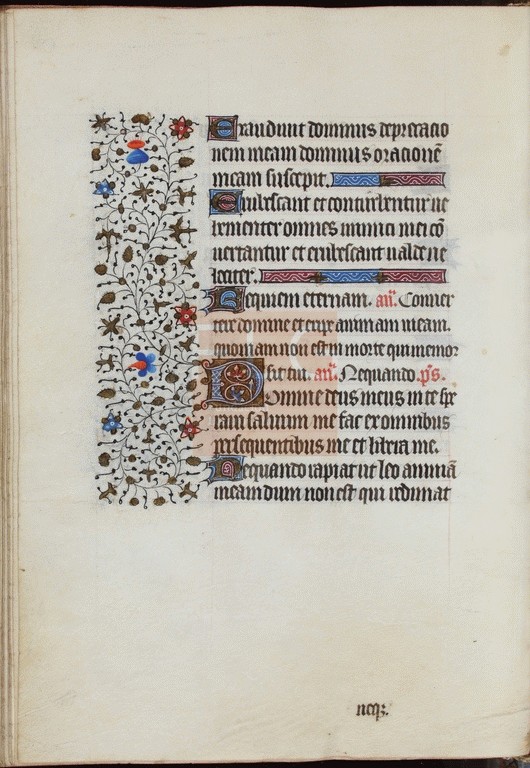 Exaudiuit dominus deprecatio
nem meam dominus orationē
meam suscepit.
Erubescant et conturbentur ue
hementer omnes inimici mei cō
uertantur et erubescant ualde ue
lociter.
Requiem eternam. añ. Conuer
tere domine et eripe animam meam.
quoniam non est in morte qui memor
sit tui. añ. Nequando. ps.
Domine deus meus in te spe
raui saluum me fac ex omnibus
persequentibus me et libera me.
Nequando rapiat ut leo animā
meam dum non est qui redimat
neqꝫ.